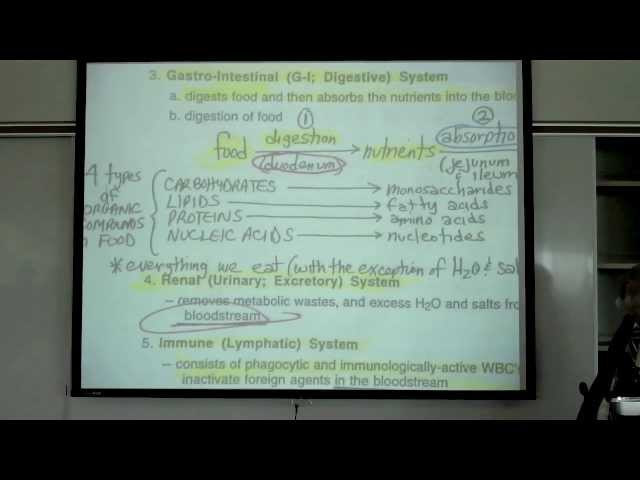 3. Gastro-Intestinal (G-I; Digestive) System
a. digests food and then absorbs the nutrients into the bloo
b. digestion of food
① ②
food digestion nutrients absorptio
(duodenum) (jejunum
& ileum
4 types
of
ORGANIC
COMPOUNDS
FOOD
CARBOHYDRATES → monosaccharides
LIPIDS → fatty acids
PROTEINS → amino acids
NUCLEIC ACIDS → nucleotides
*everything we eat (with the exception of H₂O & sal
4. Renal (Urinary; Excretory) System
– removes metabolic wastes, and excess H₂O and salts fro
bloodstream
5. Immune (Lymphatic) System
– consists of phagocytic and immunologically-active WBC's
inactivate foreign agents in the bloodstream